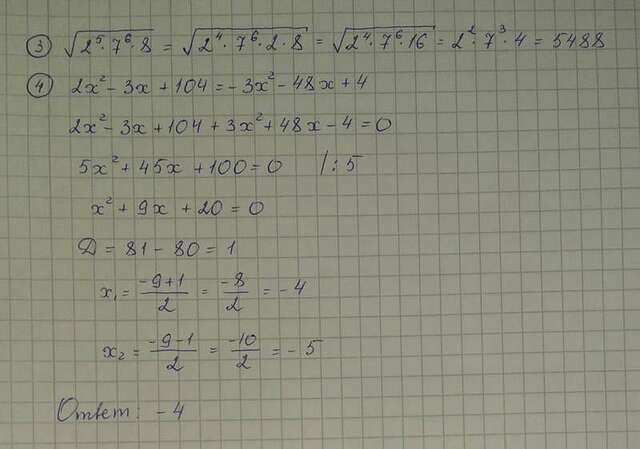 ③ √(2⁵·7⁶·8) = √(2⁴·7⁶·2·8) = √(2⁴·7⁶·16) = 2²·7³·4 = 5488
④ 2x² - 3x + 104 = -3x² - 48x + 4
2x² - 3x + 104 + 3x² + 48x - 4 = 0
5x² + 45x + 100 = 0 /:5
x² + 9x + 20 = 0
Д = 81 - 80 = 1
x₁ = (-9+1)/2 = -8/2 = -4
x₂ = (-9-1)/2 = -10/2 = -5
Ответ: -4